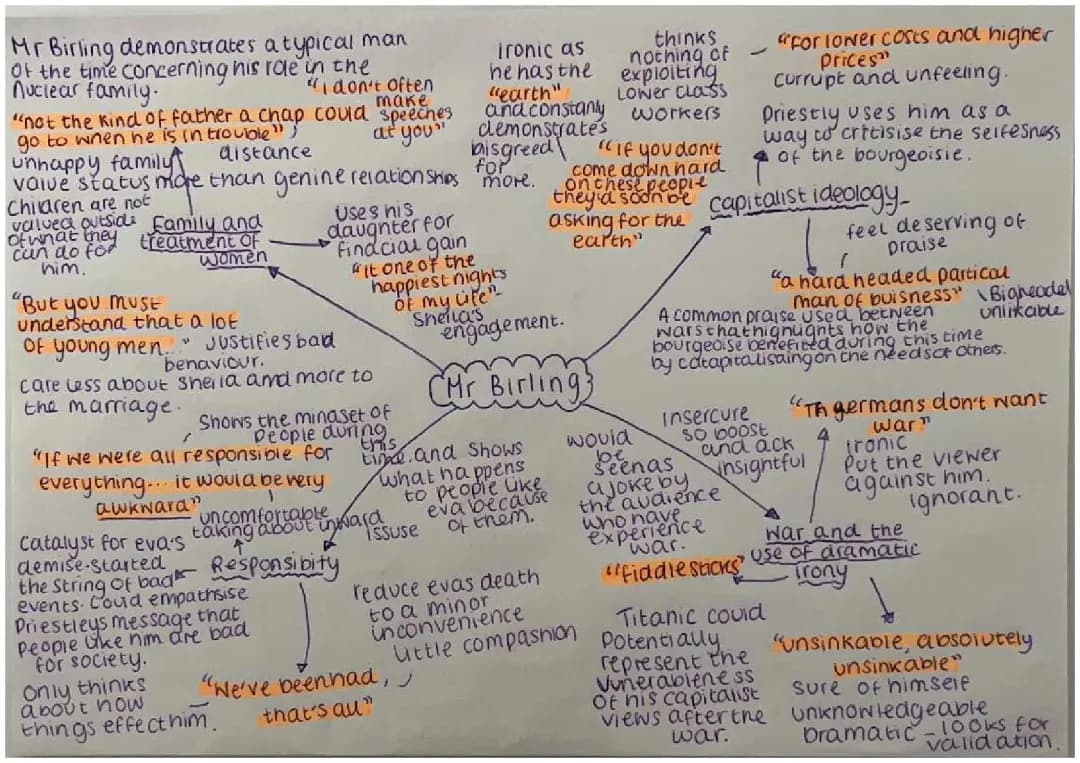 Mr Birling demonstrates a typical man
of the time concerning his role in the
nuclear family.
"I don't often
make
speeches
at you"
"not the kind of father a chap could
go to when he is in trouble"
distance
unhappy family
value status more than genine relationships
Children are not
valued outside
of what they
can do for
him.
Family and
treatment of
women
uses his
daughter for
finacial gain
"It one of the
happiest nights
of my life"-
Sheila's
engagement.
"But you must
understand that a lot
of young men..." Justifies bad
behaviour.
care less about Sheila and more to
the marriage.
Ironic as
he has the
"earth"
and constanly
demonstrates
disgreed
for
more.
thinks
nothing of
exploiting
lower class
workers
"If you don't
come down hard
on these people
they'd soon be
asking for the
earth"
- "for lower costs and higher
prices"
currupt and unfeeling.
Priestly uses him as a
way to critisise the selfesness
of the bourgeoisie.
capitalist ideology
feel deserving of
praise
"a hard headed partical
man of buisness"
Bigheaded
unlikable
A common praise used between
wars that highlights how the
bourgeoise benefited during this time
by catapitalisaing on the needs of others.
Mr Birling
Shows the mindset of
people during
this
time. and shows
what happens
to people like
eva because
of them.
"If we were all responsible for
everything... it would be very
awkward"
uncomfortable
taking about inward
issuse
Catalyst for eva's
demise-started
the string of bad
events. Could empathsise
Priestleys message that
people like him are bad
for society.
Responsibity
reduce evas death
to a minor
unconvenience
little compashion
only thinks
about how
things effect him.
- "We've been had,
that's all"
would
be
seen as
a joke by
the audience
who have
experience
war.
insercure
so boost
and ack
insightful
"Th germans don't want
war"
ironic
Put the viewer
against him.
ignorant.
War and the
use of dramatic
irony
"fiddlesticks"
Titanic could
Potentially
represent the
vunerableness
of his capitalist
views after the
war.
"unsinkable, absolutely
unsinkable"
Sure of himself
unknowledgeable
Dramatic - looks for
validation.